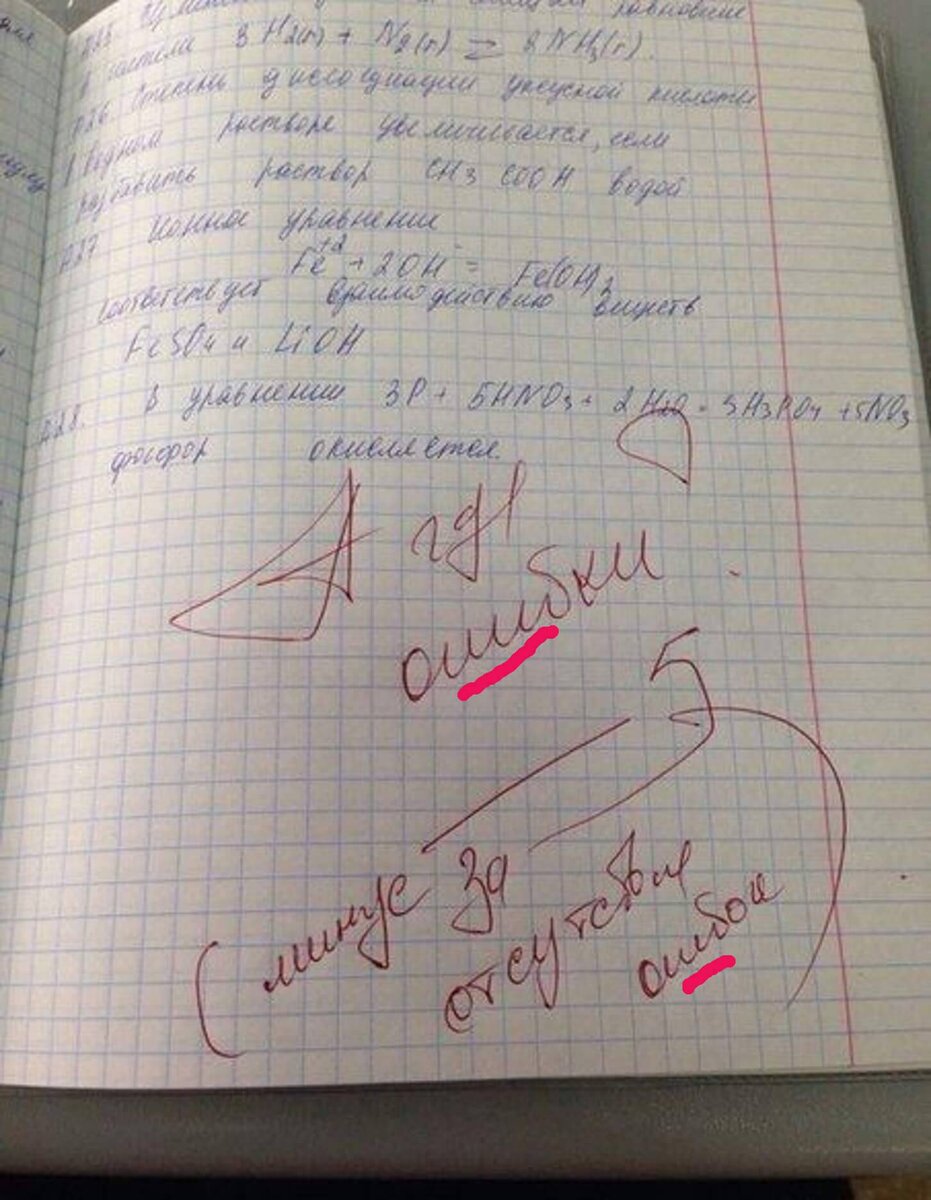 равновесие
3 H2(г) + N2(г) ⇄ 2NH3(г).
А26. Степень диссоциации уксусной кислоты
в водном растворе увеличивается, если
разбавить раствор CH3 COOH водой
А27. Ионное уравнение
Fe+2 + 2OH- = Fe(OH)2
соответствует взаимодействию веществ
FeSO4 и LiOH
А28. В уравнении 3P + 5HNO3 + 2H2O = 3H3PO4 + 5NO
фосфор окисляется.
А где
ошибки ?
5-
(минус за
отсутствие
ошибок)